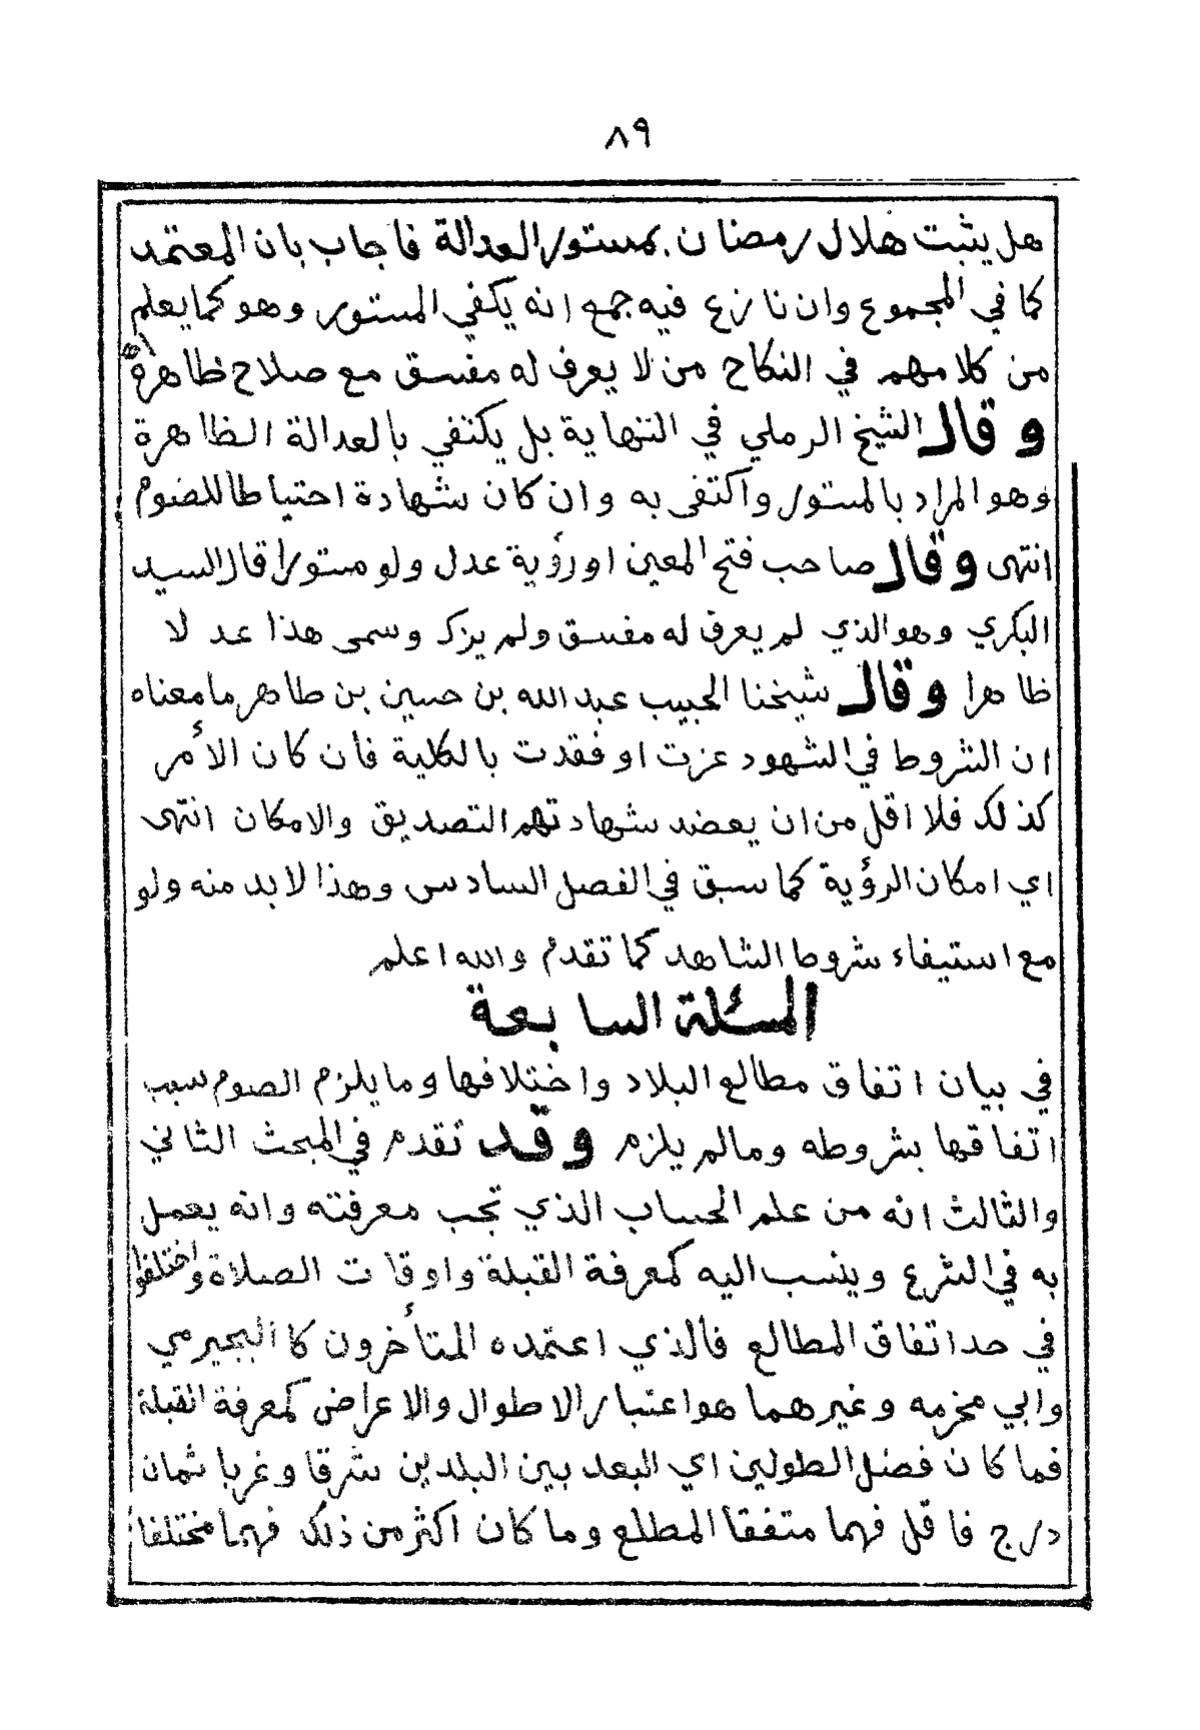 ٨٩
هل يثبت هلال رمضان بمستور العدالة فاجاب بان المعتمد
كما في المجموع وان نازع فيه جمع انه يكفي المستور وهو كما يعلم
من كلامهم في النكاح من لا يعرف له مفسق مع صلاح ظاهرة اه
وقال الشيخ الرملي في النهاية بل يكتفي بالعدالة الظاهرة
وهو المراد بالمستور واكتفى به وان كان شهادة احتياطا للصوم
انتهى وقال صاحب فتح المعين او رؤية عدل ولو مستورا قال السيد
البكري وهو الذي لم يعرف له مفسق ولم يزك وسمى هذا عد لا
ظاهرا وقال شيخنا الحبيب عبد الله بن حسين بن طاهر ما معناه
ان الشروط في الشهود عزت او فقدت بالكلية فان كان الأمر
كذلك فلا اقل من ان يعضد شهادتهم التصديق والامكان انتهى
اي امكان الرؤية كما سبق في الفصل السادس وهذا لا بد منه ولو
مع استيفاء شروط الشاهد كما تقدم والله اعلم
المسئلة السابعة
في بيان اتفاق مطالع البلاد واختلافها وما يلزم الصوم سبب
اتفاقها بشروطه ومالم يلزم وقد تقدم في المبحث الثاني
والثالث انه من علم الحساب الذي تجب معرفته وانه يعمل
به في الشرع وينسب اليه كمعرفة القبلة واوقات الصلاة واختلفوا
في حد اتفاق المطالع فالذي اعتمده المتأخرون كالبجيرمي
وابي مخرمه وغيرهما هو اعتبار الاطوال والاعراض كمعرفة القبلة
فما كان فضل الطولين اي البعد بين البلدين شرقا وغربا ثمان
درج فاقل فهما متفقا المطلع وما كان اكثر من ذلك فهما مختلفا